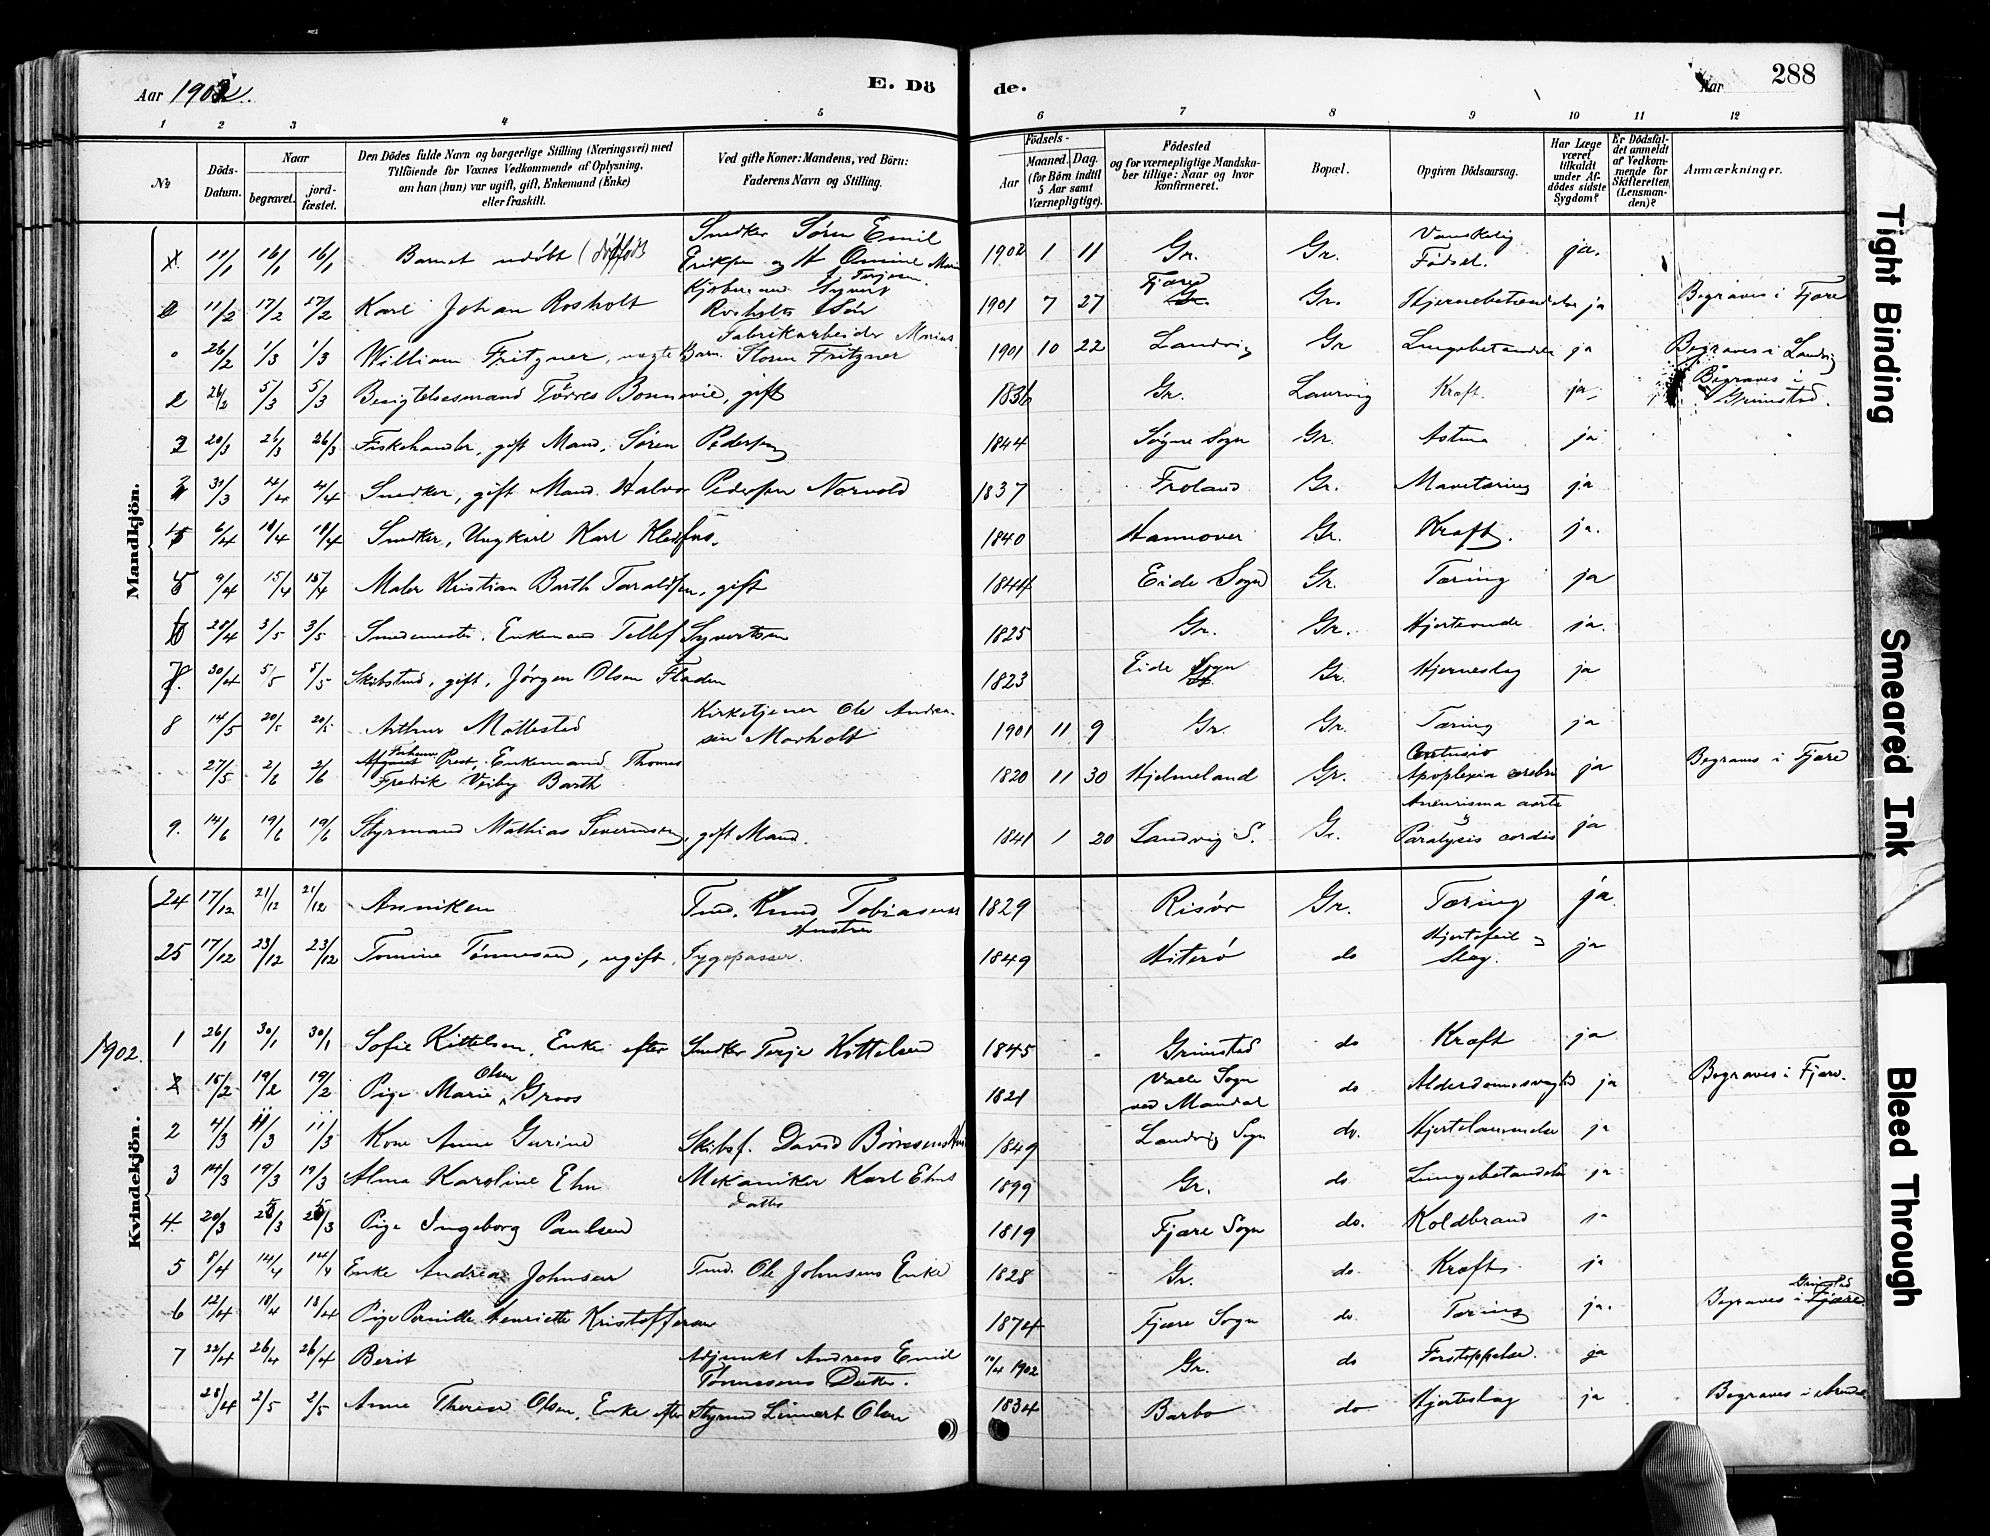 Aar 1902.
E. Dö
de.
Aar
288
1 2 3 4 5 6 7 8 9 10 11 12
No
Döds-Datum.
Naar
begravet.
jord-fæstet.
Den Dödes fulde Navn og borgerlige Stilling (Næringsvei) med
Tilföiende for Voxnes Vedkommende af Oplysning,
om han (hun) var ugift, gift, Enkemand (Enke)
eller fraskilt.
Ved gifte Koner: Mandens, ved Börn:
Faderens Navn og Stilling.
Födsels-
Aar
Maaned. Dag.
(for Börn indtil
5 Aar samt
Værnepligtige).
Födested
og for værnepligtige Mandska-
ber tillige: Naar og hvor
konfirmeret.
Bopæl.
Opgiven Dödsaarsag.
Har Læge
været
tilkaldt
under Af-
dödes sidste
Sygdom?
Er Dödsfal-
det anmeldt
af Vedkom-
mende for
Skifteretten
(Lensman-
den)?
Anmærkninger.
Mandkjön.
11/1 16/1 16/1 Barnet udøbt (dødfødt Snedker Søren Emil 1902 1 11 Gr. Gr. Vanskelig Fødsel. ja.
11/2 17/2 17/2 Karl Johan Rosholt Rosholts Søn 1901 7 27 Fjære Gr. ja Begraves i Fjære
26/2 1/3 1/3 William Fritzner, Fabrikarbeider Marius Fritzner 1901 10 22 Landvig Gr ja Begraves i Landvig
2 26/2 5/3 5/3 Besigtelsesmand Tørres Bonnevie, gift 1836 Gr. Laurvig Kræft. ja Begraves i Grimstad.
20/3 26/3 26/3 Fiskehandler, gift Mand, Søren Pedersen 1844 Søgne Sogn Gr. Astma ja
31/3 4/4 4/4 Snedker, gift Mand. Halvor Pedersen Norvold 1837 Froland Gr. Mavetæring ja
6/4 10/4 10/4 Snedker, Ungkarl Karl 1840 Hannover Gr. Kræft. ja.
5 9/4 15/4 15/4 Maler Kristian Barth Taraldsen, gift 1844 Eide Sogn Gr. Tæring ja
6 28/4 3/5 3/5 Smedemester. Enkemand Tellef Syvertsen 1825 Gr. Gr. Hjerteonde ja.
7. 30/4 5/5 5/5 Skibstmd, gift, Jørgen Olsen Fladen 1823 Eide Sogn Gr. Hjerneslag ja
8 14/5 20/5 20/5 Arthur Møllestad Kirketjener Ole Andrea-
sen Morholt 1901 11 9 Gr. Gr. Tæring ja
27/5 2/6 2/6 Prest, Enkemand Thomas
Fredrik Barth 1820 11 30 Hjelmeland Gr. Contusio Apoplexia cerebri ja Begraves i Fjære
9. 14/6 19/6 19/6 Styrmand Mathias Severinsen, gift Mand. 1841 1 20 Landvig S. Gr. Aneurisma aorte
Paralysis cordis ja
Kvindekjön.
24 17/12 21/12 21/12 Anniken Tmd. Knud Tobiasens Hustru 1829 Risør Gr. Tæring ja
25 17/12 23/12 23/12 Tomine Tønnesen, ugift, Sygepasser. 1849 Hiterø do Hjertefeil Slag. ja
1902.
1 26/1 30/1 30/1 Sofie Kittelsen, Enke efter Snedker Terje Kittelsen 1845 Grimstad do Kræft ja
15/2 19/2 19/2 Pige Marie Olsen Groos 1821 Valle Sogn
ved Mandal do Alderdomssvaghed ja Begraves i Fjære.
2 4/3 11/3 11/3 Kone Anne Gurine Skibsf. David Børresens 1849 Landvig Sogn do. Hjertelammelse ja
3 14/3 19/3 19/3 Alma Karoline Ehn Mekaniker Karl Ehns
Datter 1899 Gr. do Lungebetændelse ja
4. 20/3 25/3 25/3 Pige Ingeborg Paulsen 1819 Fjære Sogn do. Koldbrand ja
5 8/4 14/4 14/4 Enke Andrea Johnsen Tmd. Ole Johnsens Enke 1828 Gr. do Kræft ja
6 12/4 18/4 18/4 Pige Pernille Henriette Kristoffersen 1874 Fjære Sogn do. Tæring ja. Begraves i Grimstad Fjære.
7 22/4 26/4 26/4 Berit Adjunkt Andreas Emil
Tønnesens Datter. 10/4 1902 Gr. do Forstoppelse. ja
28/4 2/5 2/5 Anne Therese Olsen, Enke efter Styrmd Lennart Olsen 1834 Barbo do Hjerteslag ja Begraves i Arendal
Tight Binding
Smeared Ink
Bleed Through